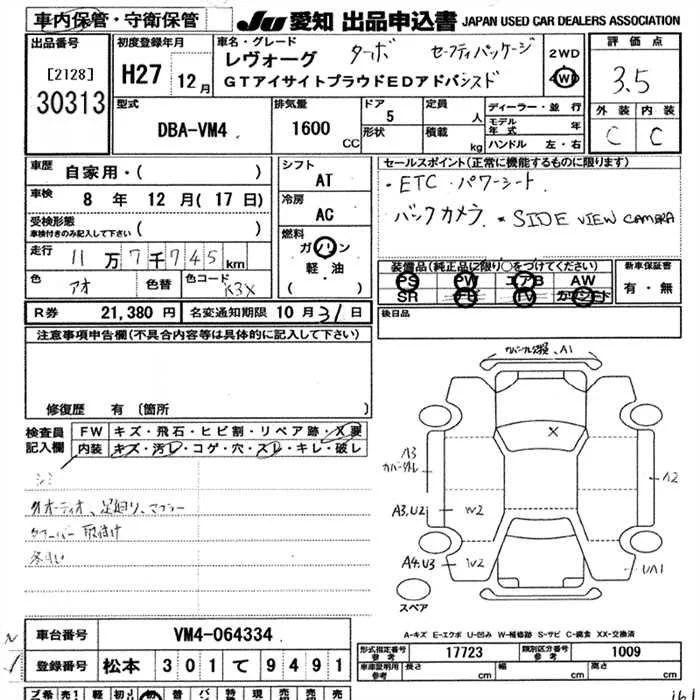 車内保管・守衛保管
JU 愛知 出品申込書 JAPAN USED CAR DEALERS ASSOCIATION
出品番号
[2128]
30313
初度登録年月
H27 12月
車名・グレード
レヴォーグ ターボ セーフティパッケージ
GTアイサイトプラウドEDアドバンスド
2WD
4WD
評価点
3.5
外装 内装
C C
型式
DBA-VM4
排気量
1600 CC
ドア
5
形状
定員
人
積載
kg
ディーラー・並行
モデル年式 年
ハンドル 左・右
車歴
自家用・( )
車検
8年 12月(17日)
受検形態
車検付きのみ記入して下さい ( )
走行
11万7千745km
色
アオ
色替
色コード
K3X
シフト
AT
冷房
AC
燃料
ガソリン
軽・油
( )
セールスポイント(正常に機能するものに限ります)
・ETC・パワーシート.
バックカメラ * SIDE VIEW CAMERA
装備品(純正品に限り○をつけてください)
PS PW エアB AW
SR ナビ TV カワシート
新車保証書
有・無
後日品
R券 21,380円 名変通知期限 10月31日
注意事項申告欄(不具合内容等は具体的に記入して下さい)
修復歴 有 〔箇所 〕
検査員記入欄
FW キズ・飛石・ヒビ割・リペア跡・X要
内装 キズ・汚レ・コゲ・穴・スレ・キレ・破レ
シミ
オーディオ、足廻り、マフラー
タワーバー 取付け
A1
A3
A3,U2
W2
A4,U3
W2
A2
UA1
X
スペア
A-キズ E-エクボ U-凹み W-補修跡 S-サビ C-腐食 XX-交換済
車台番号 VM4-064334
登録番号 松本 301 て 9491
形式指定番号 参考 17723
類別区分番号 参考 1009
車庫証明用 参考 長さ cm 幅 cm 高さ cm